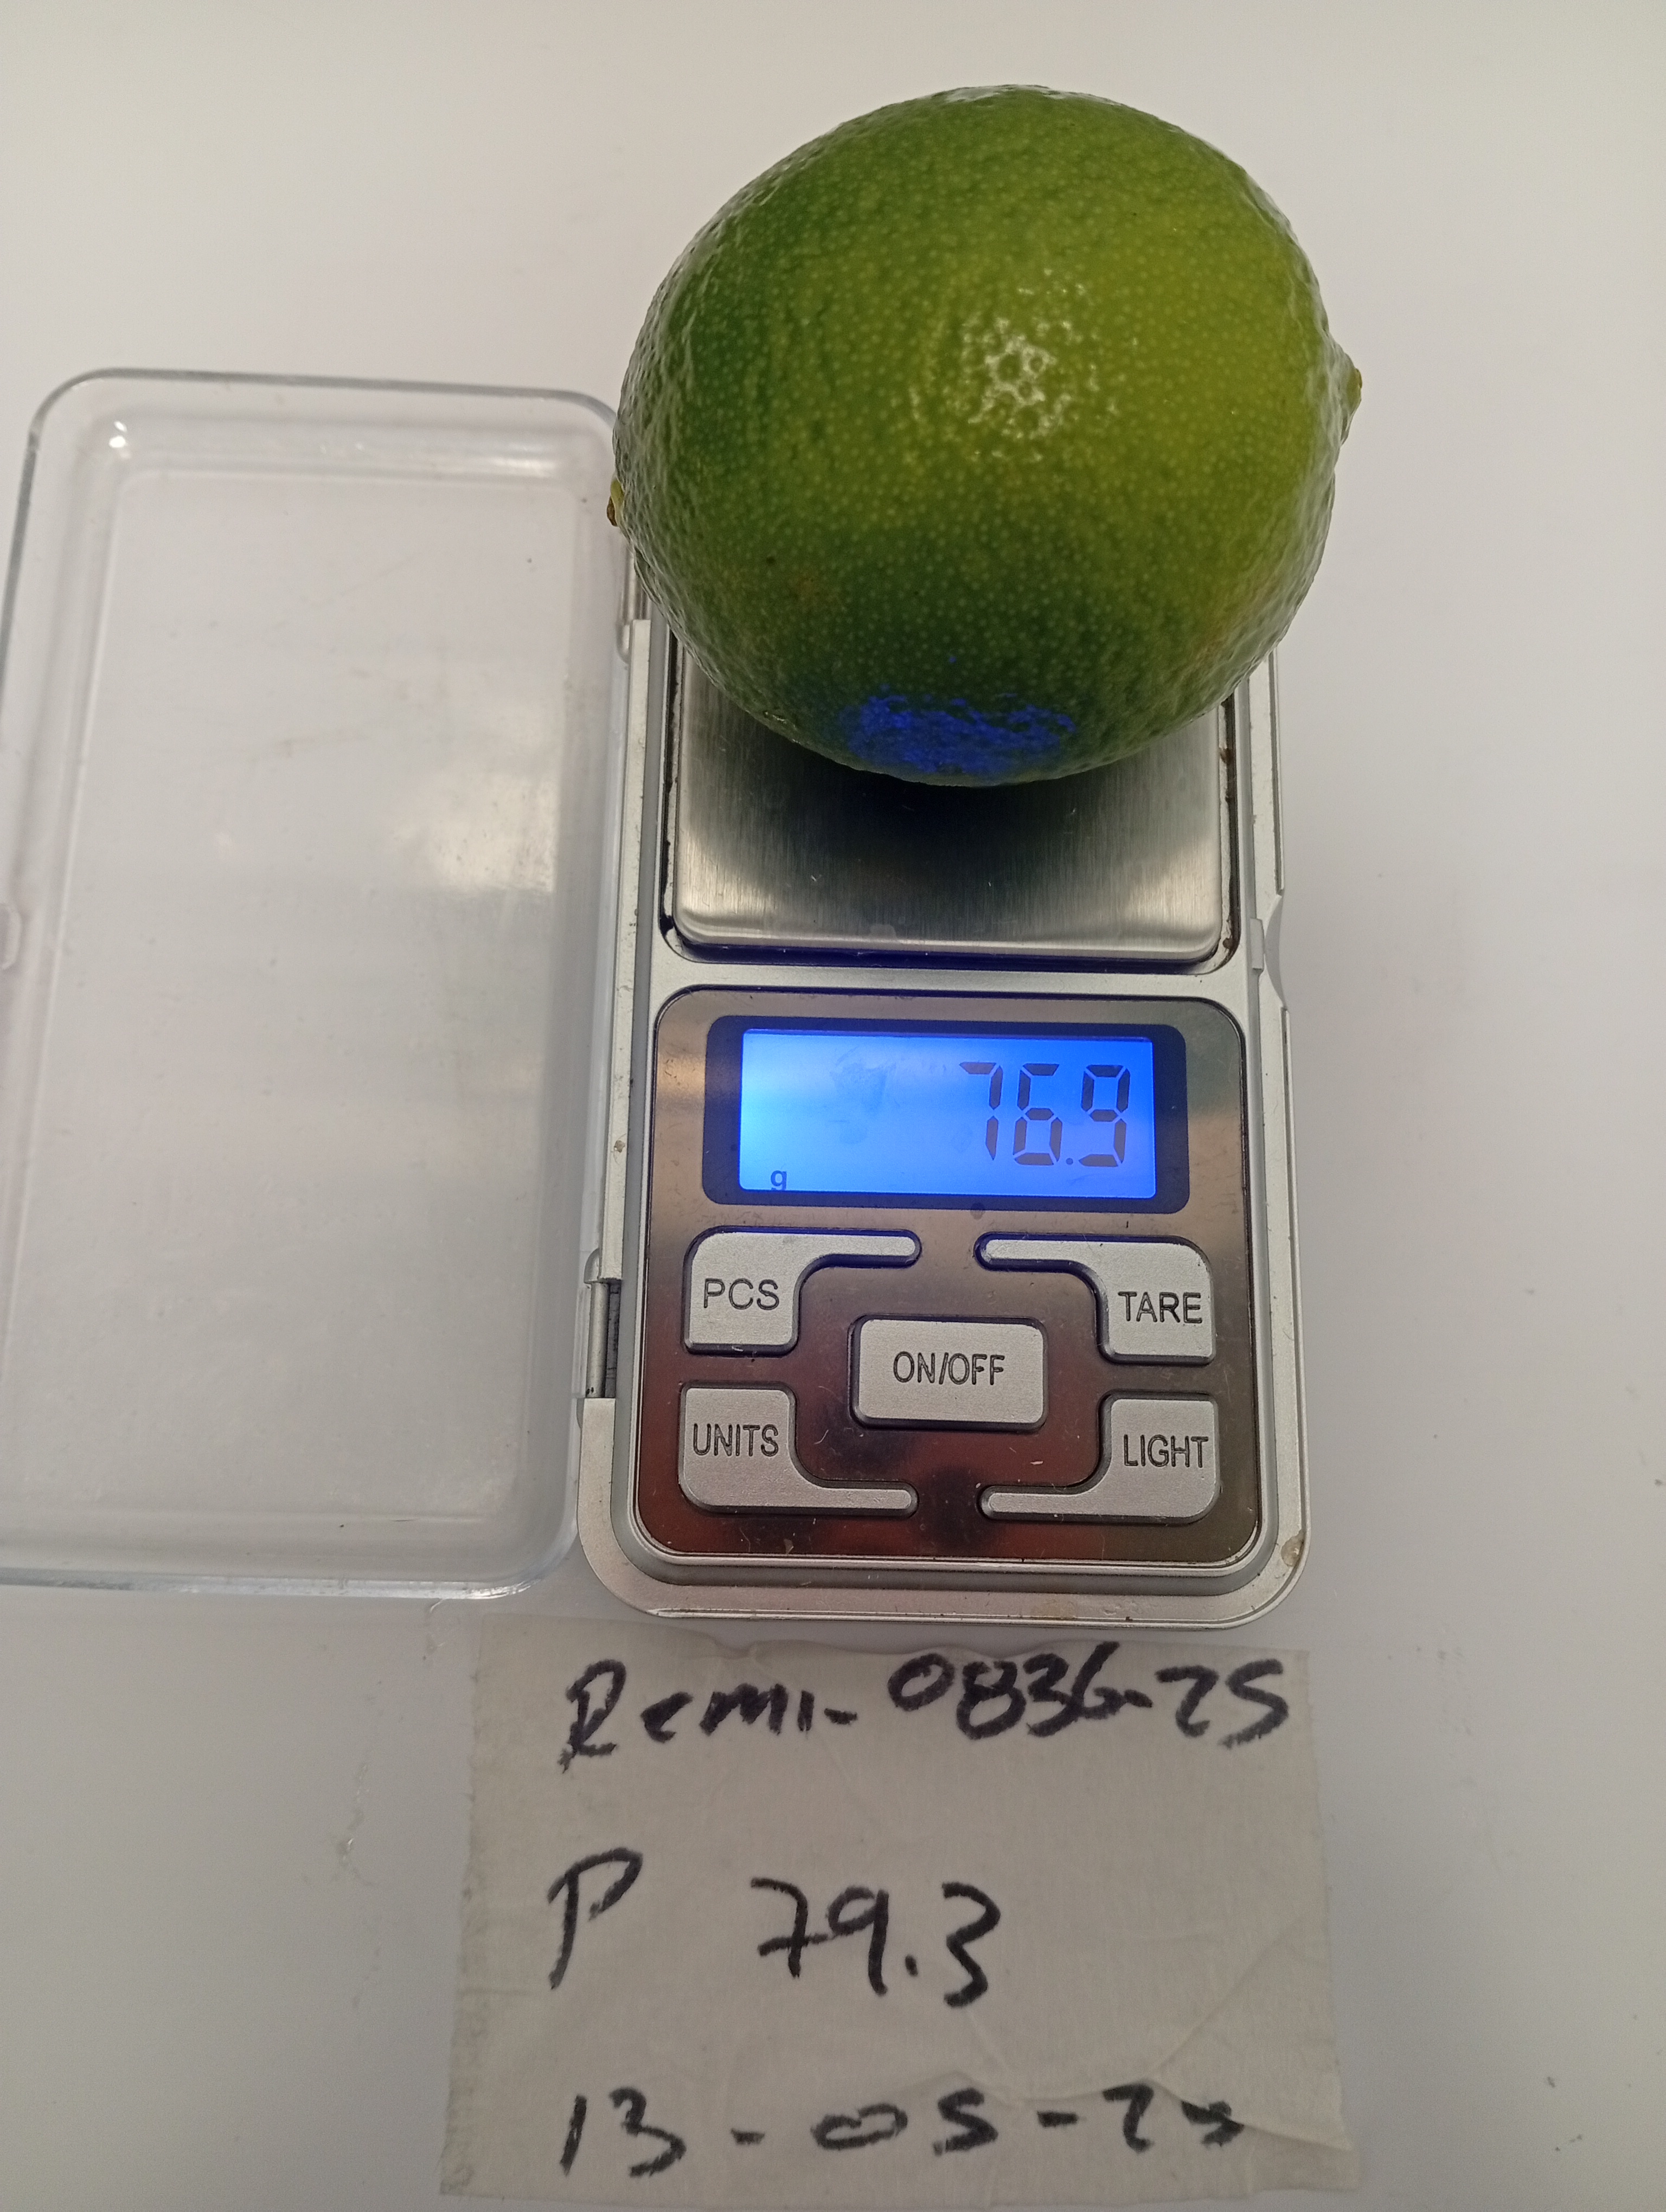 76.9
g
PCS
TARE
ON/OFF
UNITS
LIGHT
Remi-0836-25
P 79.3
13-05-25